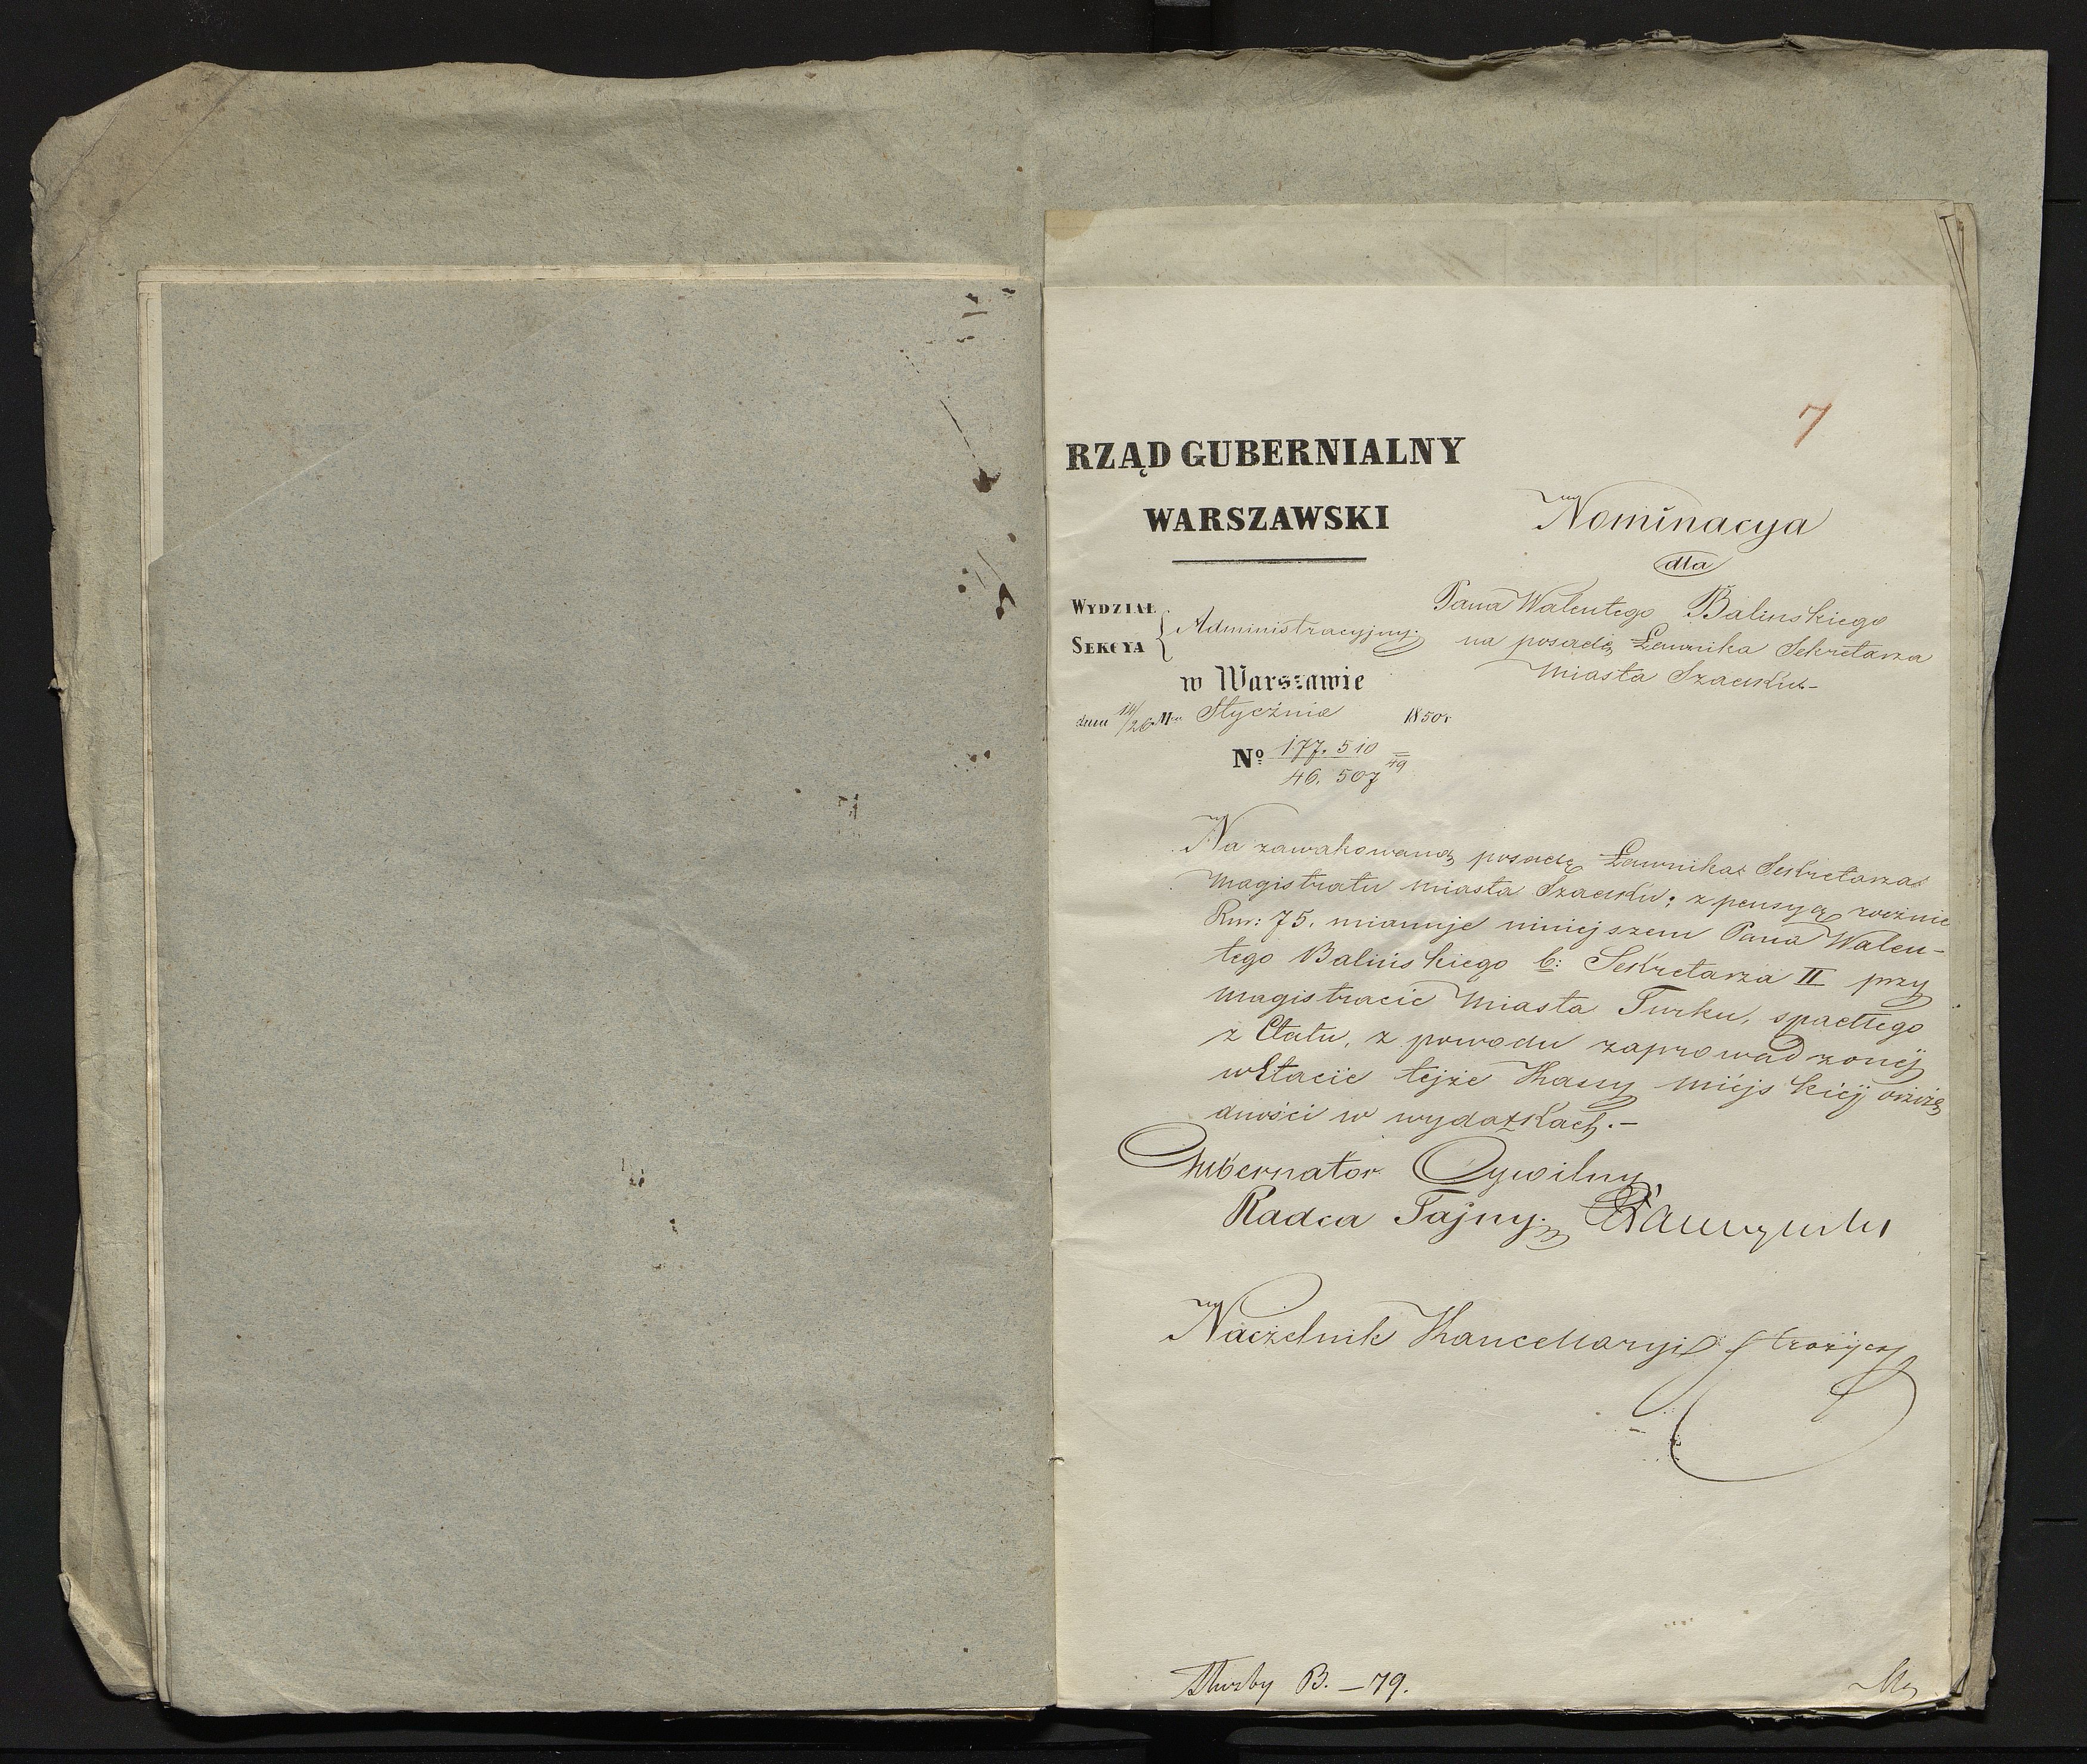 7
RZĄD GUBERNIALNY
WARSZAWSKI
Nominacya
dla
Pana Walentego Balinskiego
na posadę Ławnika Sekretarza
Miasta Szadku.-
WYDZIAŁ
SEKCYA
Administracyjny.
w Warszawie
dnia 14/26 Mca Stycznia 1850 r
No 177.510
46.507 /49
Na zawakowaną posadę Ławnika Sekretarza
Magistratu miasta Szadku; z pensyą rocznie
Rsr: 75. mianuje niniejszem Pana Walen-
tego Balińskiego b: Sekretarza II przy
magistracie Miasta Turku, spadłego
z Etatu, z powodu zaprowadzonej
w Etacie tejże Kassy miejskiej oszczę
dności w wydatkach.-
Gubernator Cywilny,
Radca Tajny.
Naczelnik Kancellaryi
Służby B. - 79.